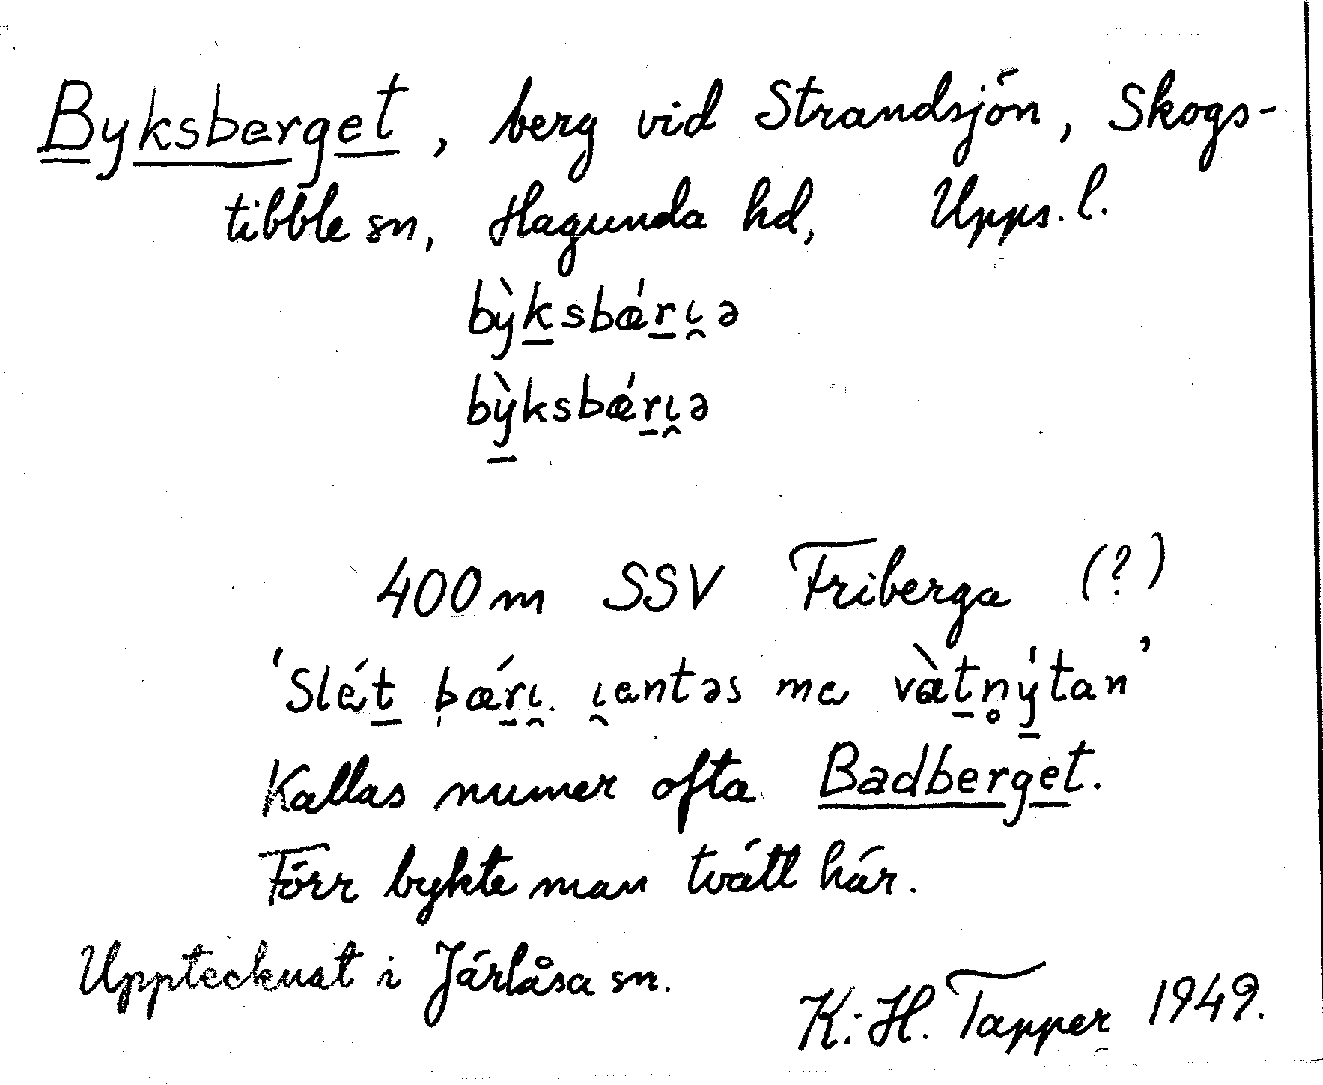 Byksberget, berg vid Strandsjön, Skogs-
tibble sn, Hagunda hd, Upps. l.
bỳksbǽrı̯ə
bỳksbǽrı̯ə
400 m SSV Friberga (?)
'Slét bǽrı̯. ı̯entəs me vàtn̥ýtan'
Kallas numer ofta Badberget.
Förr bykte man tvätt här.
Upptecknat i Järlåsa sn.
K.-H. Tapper 1949.